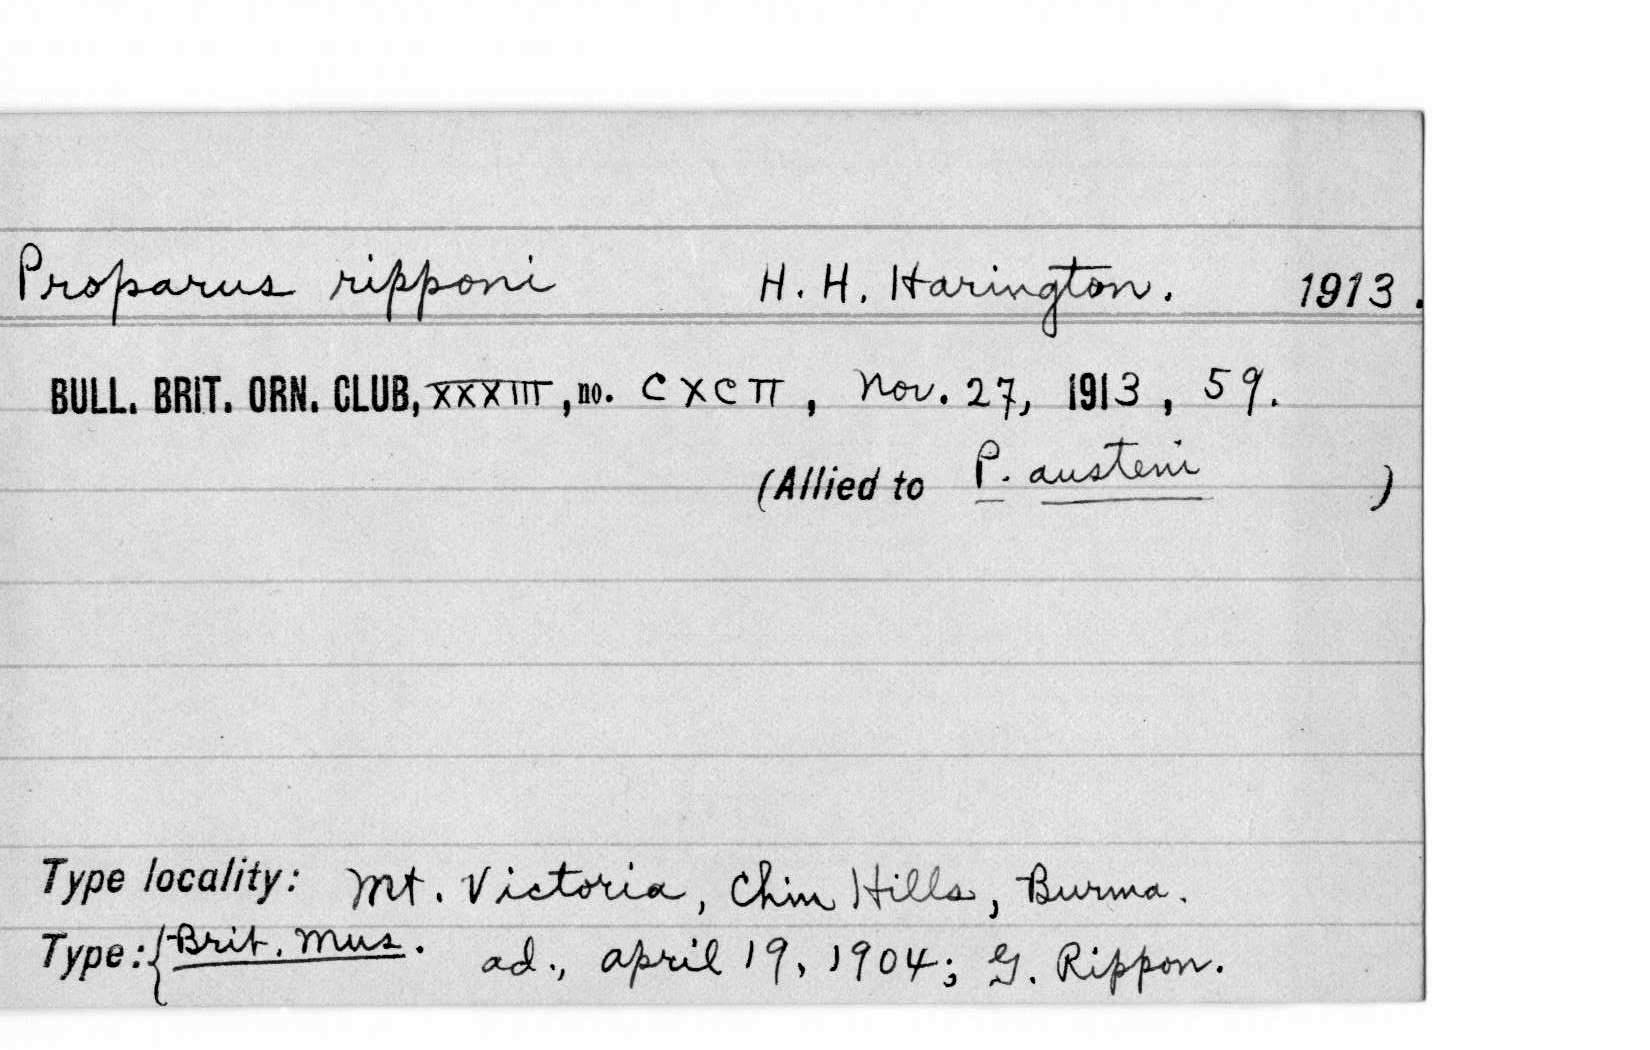 Proparus ripponi H. H. Harington. 1913.
BULL. BRIT. ORN. CLUB, XXXIII, no. CXCII, Nov. 27, 1913, 59.
(Allied to P. austeni )
Type locality: Mt. Victoria, Chin Hills, Burma.
Type: { Brit. Mus. ad., April 19, 1904; G. Rippon.